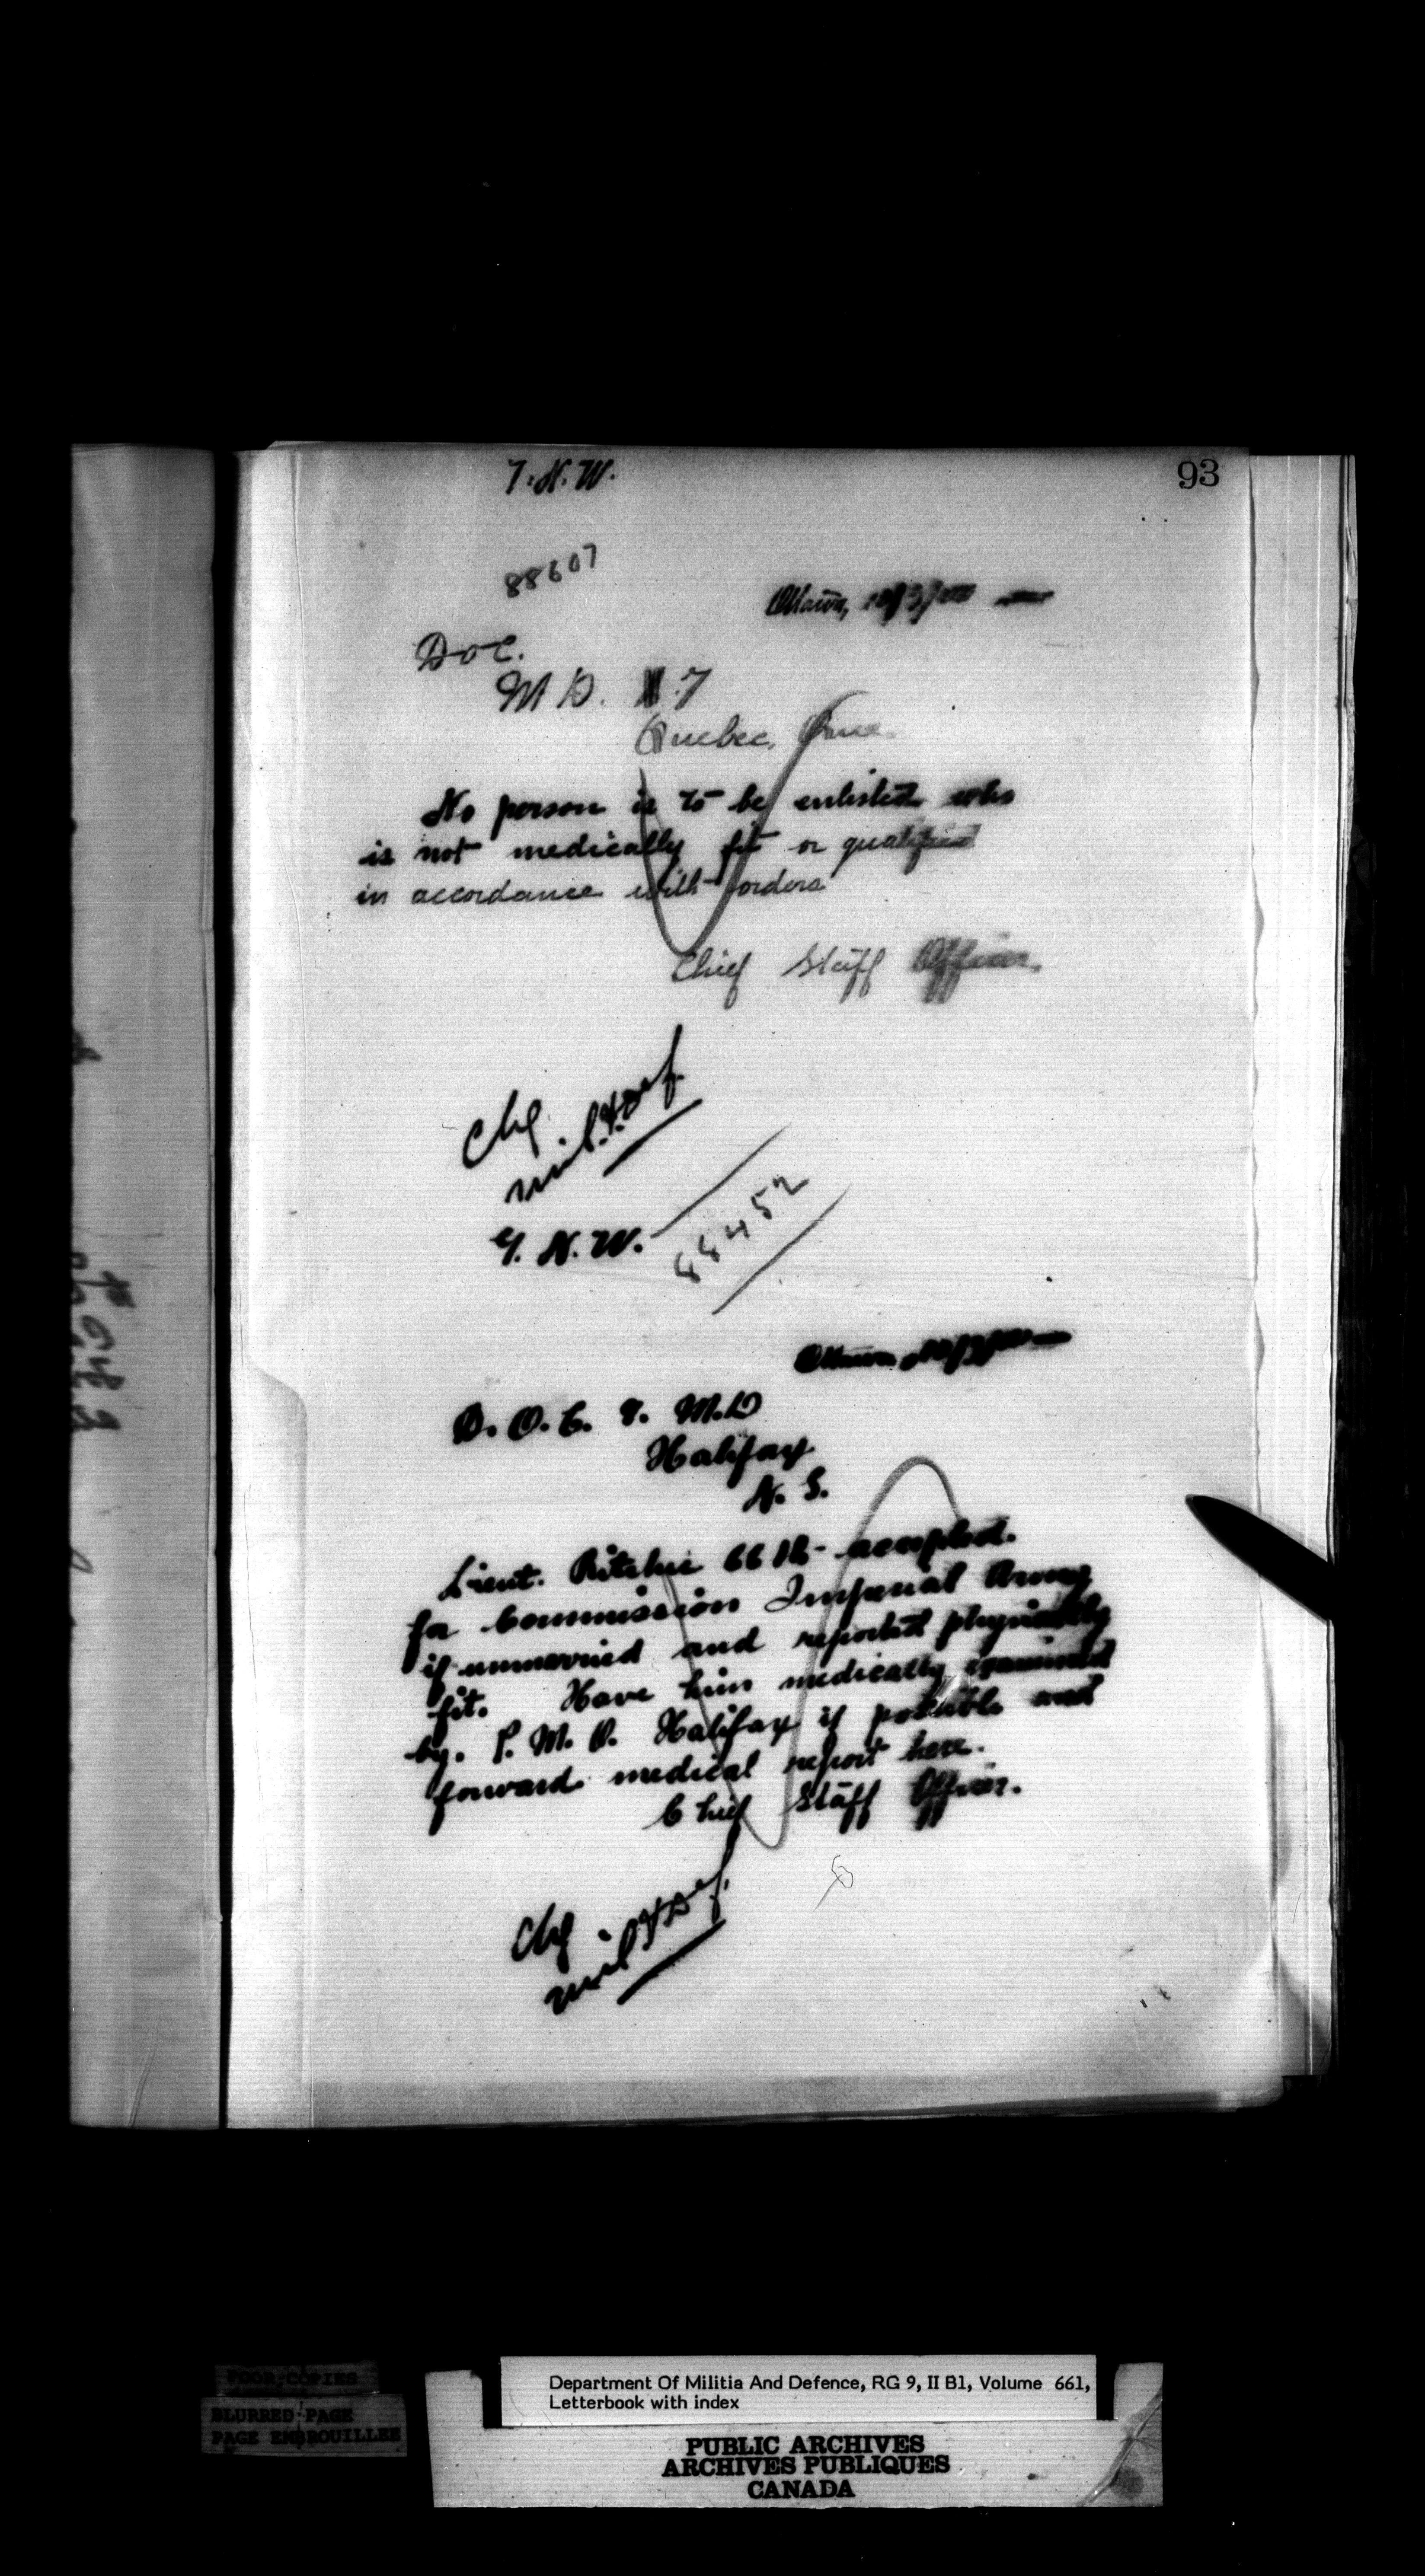 93
G.N.W.
88607
Ottawa,
DOC.
M D. 7
Quebec, Que.
No person is to be enlisted who
is not medically fit or qualified
in accordance with orders
Chief Staff Officer.
Chg
Mil. & Def.
G. N. W.
88452
Ottawa
D. O. C. 9. M.D
Halifax
N. S.
Lieut. Ritchie 66th accepted.
for Commission Imperial Army
if unmarried and reported physically
fit. Have him medically examined
by. P. M. O. Halifax if possible and
forward medical report here.
Chief Staff Officer.
Chg
Mil & Def.
POOR COPIES
BLURRED PAGE
PAGE EMBROUILLEE
Department Of Militia And Defence, RG 9, II B1, Volume 661,
Letterbook with index
PUBLIC ARCHIVES
ARCHIVES PUBLIQUES
CANADA